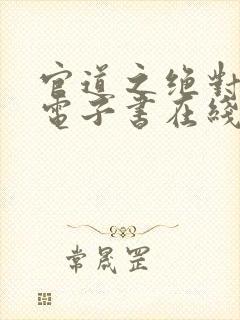 官道之绝對
電子書在綫
常晟罡